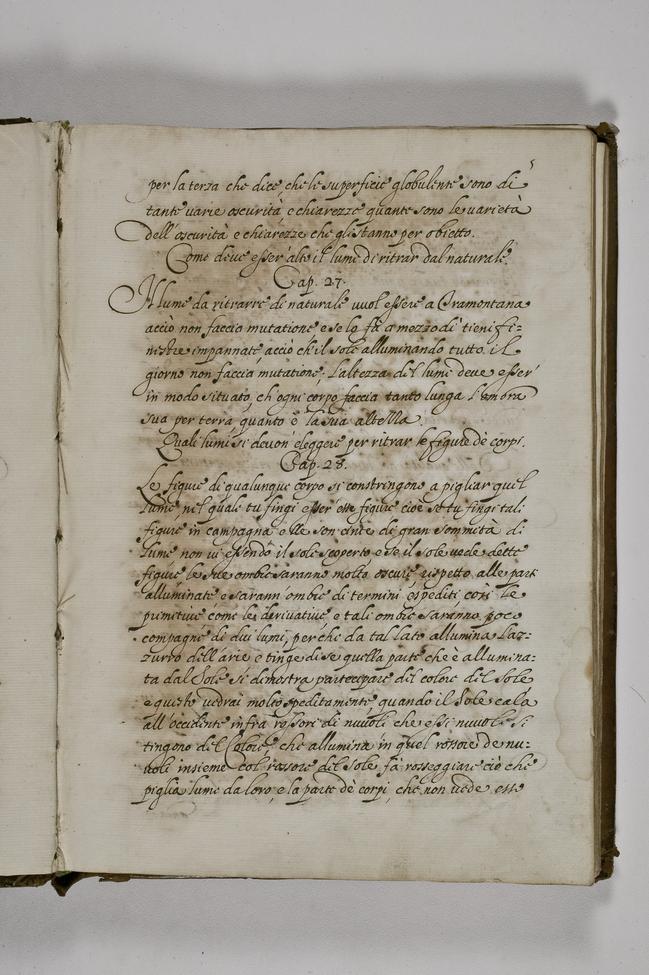 5
per la terza che dice, che le superficie globulente sono di
tante varie oscurità, e chiarezze quante sono le varietà
dell'oscurità e chiarezze che gli stanno per obietto.
Come deve esser' alto il lume di ritrar dal naturale.
Cap. 27.
Il lume da ritrarre di naturale vuol essere a Tramontana
acciò non faccia mutatione e se lo fa a mezzo dì tieni fi=
nistre impannate acciò ch'il sole alluminando tutto il
giorno non faccia mutatione; l'altezza del lume deve esser'
in modo situato, ch'ogni corpo faccia tanto lunga l'ombra
sua per terra quanto è la sua altezza.
Quali lumi si devon' eleggere per ritrar le figure dè corpi.
Cap. 28.
Le figure di qualunque corpo si constringono a pigliar quel
lume nel quale tu fingi esser' esse figure cioè se tu fingi tali
figure in campagna elle son cinte de gran sommità di
lume non vi essendo il sole scoperto e se il sole vede dette
figure le sue ombre saranno molto oscure rispetto alle parti
alluminate e sarann ombre di termini espediti così le
primitive come le derivative, e tali ombre saranno poco
compagne di dui lumi, perche da tal lato allumina l'az=
zurro dell'arie e tinge di se quella parte che è allumina=
ta dal Sole si dimostra partecipare del colore del Sole
e questo vedrai molto speditamente, quando il Sole cala
all'occidente infra rossori di nuvoli che essi nuvoli si
tingono del Colore, che allumina in quel rossore de nu=
voli insieme col rossore del Sole fà rosseggiare ciò che
piglia lume da loro, e la parte dè corpi, che non vede esse